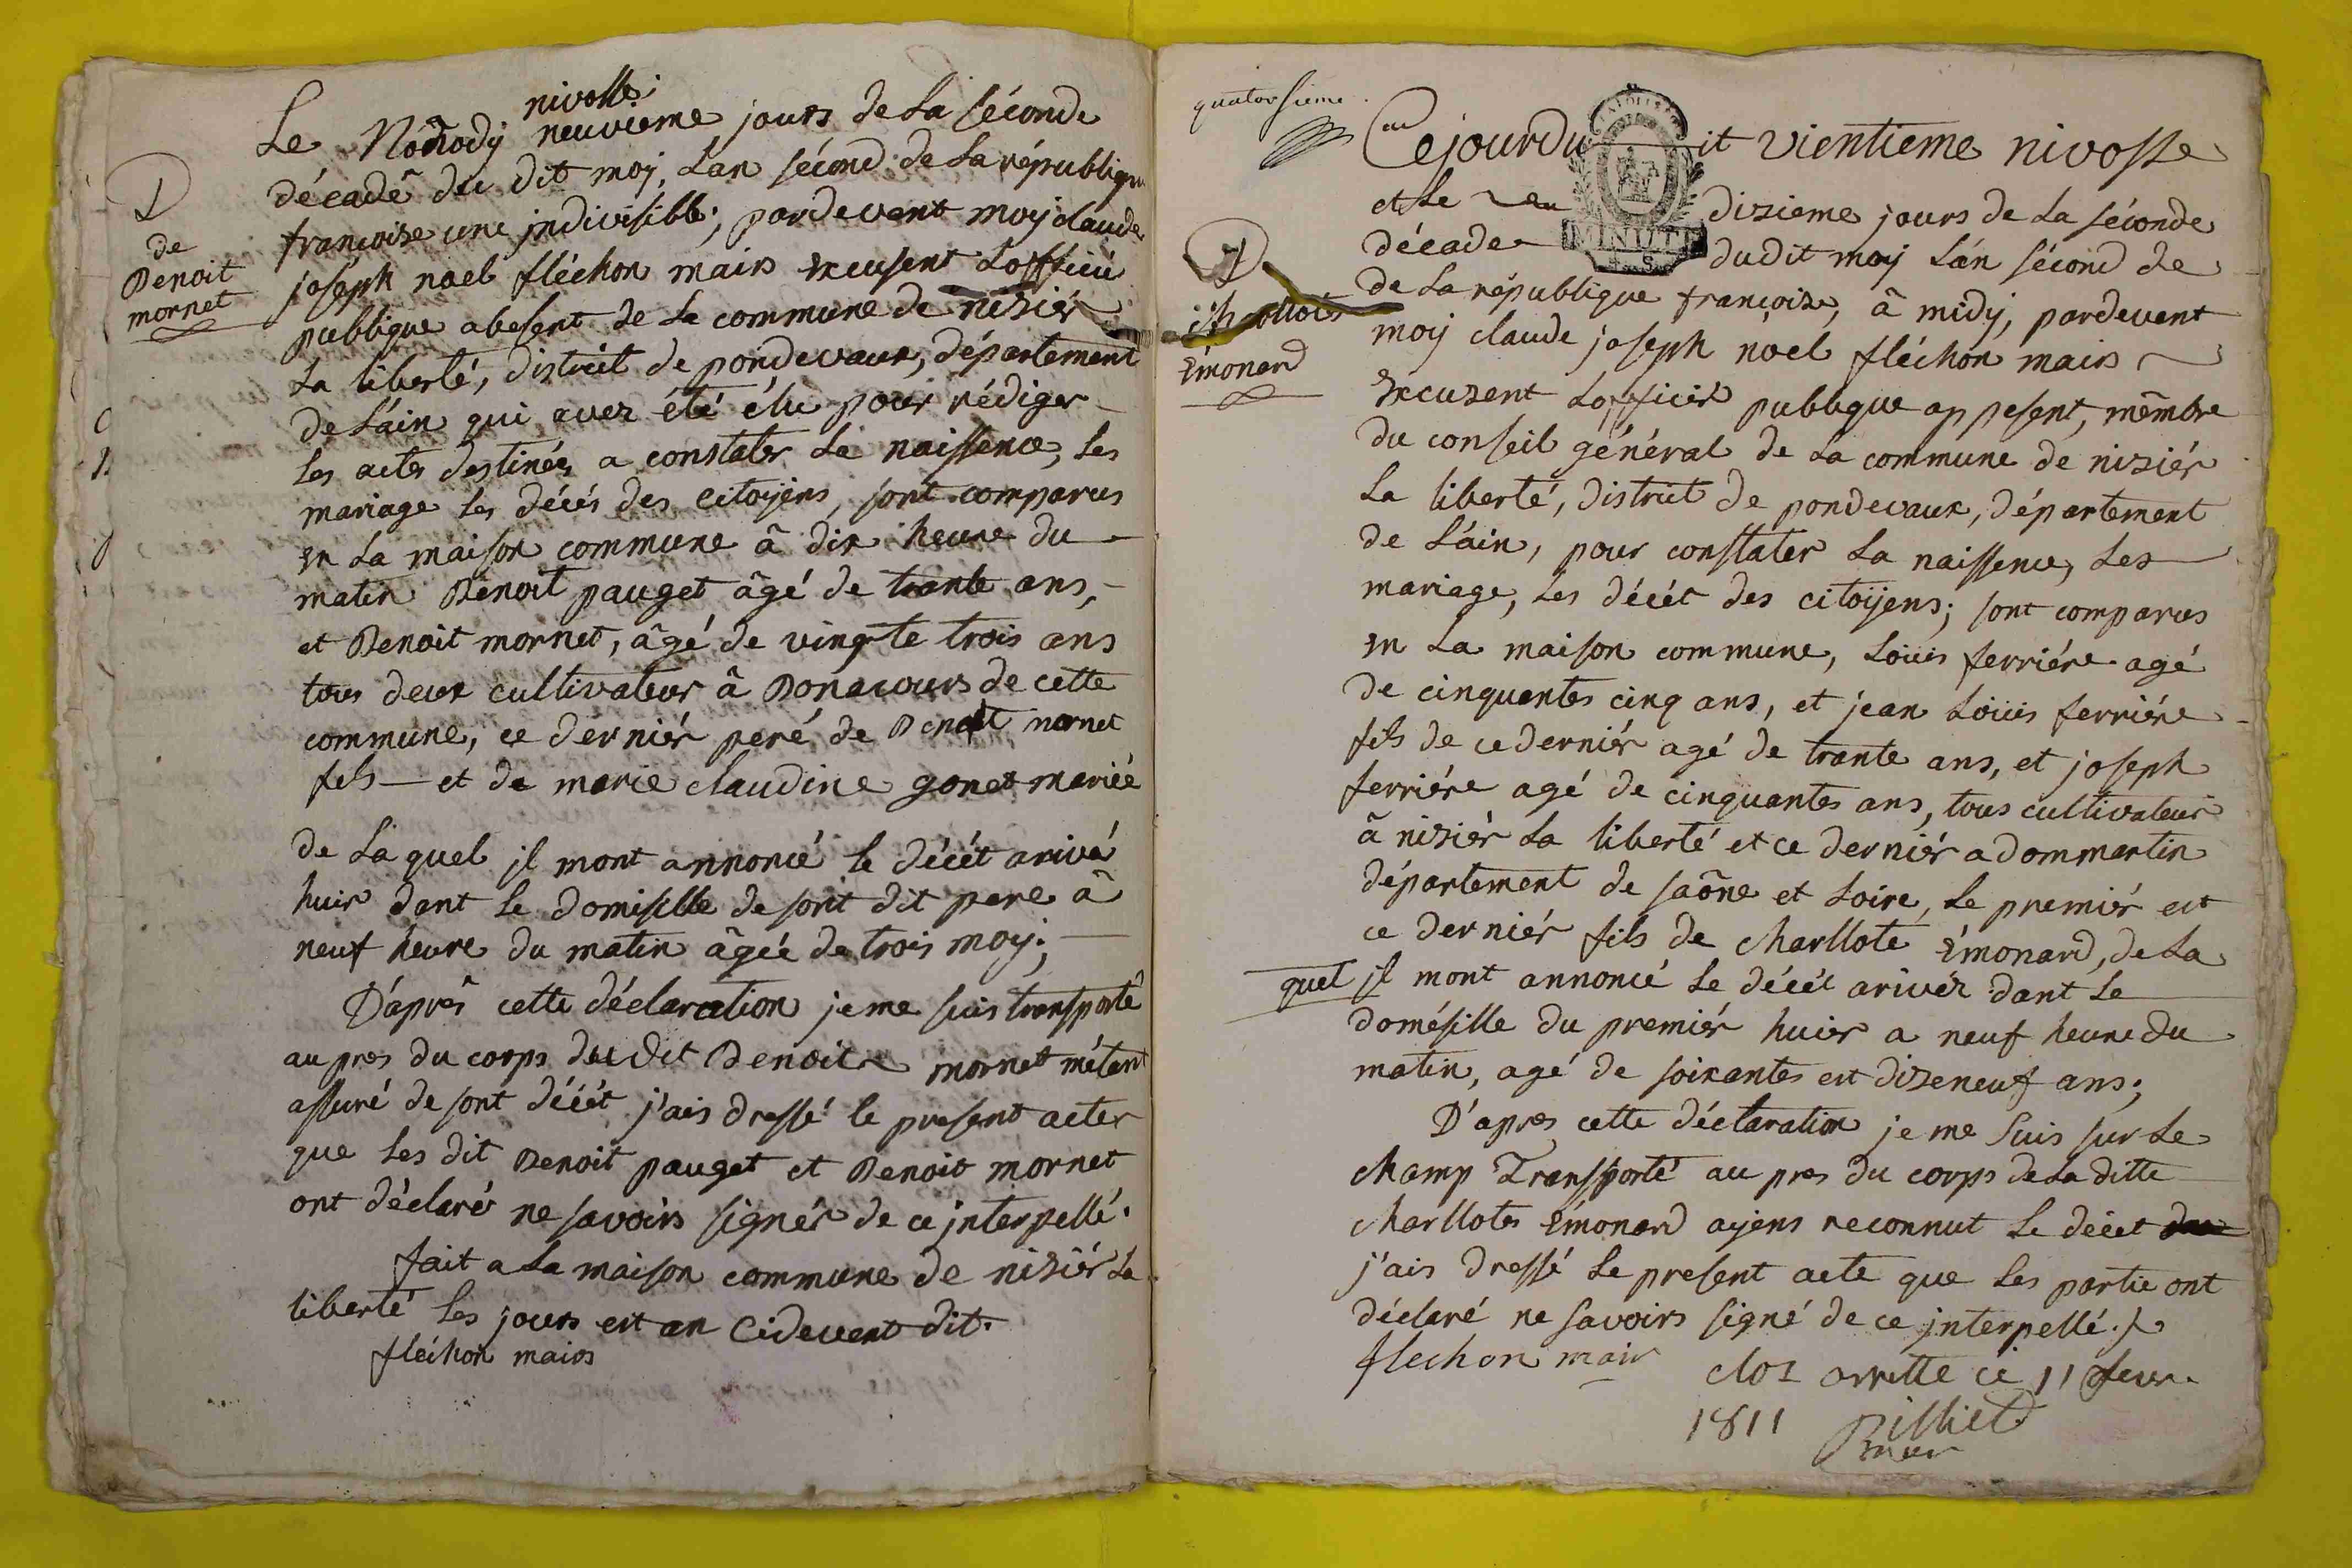 nivosse
Le Nonody neuvieme jours de La séconde
décadê du dit moy, Lan sécond de La républiqu
françoise une jndivisible; pardevent moy claude
joséph noel fléchon mair excusent Lofficié
publique abesent de La commune de niziér
La liberté, district de pondevaux, département
de L'áin qui avez été élu pour rédiger
Les actes destinés a constater La naissence, Les
mariage Les décés des citoyens, sont comparus
en La maison commune â dix heure du
matin Benoit pauget âgé de trante ans,
et Benoit mornet, âgé de vingte trois ans
tous deux cultivateur â Bonacours de cette
commune, ce derniér peré de Benoit mornet
fils — et de marie claudine gonet mariéé
de La quel jl mont annoncé le décét arivé
huir dant Le domisille de sont dit pere â
neuf heure du matin âgéé de trois moy;
D'après cette déclaration je me suis transporté
au pres du corps du dit Benoit mornet métent
assuré de sont décét j'ais dressé le present acter
que Les dit Benoit pauget et Benoit mornet
ont déclaré ne savoirs signér de ce jnterpellé.
fait a La maison commune de niziér La
liberté Les jours est an Cidevent dit.
fléchon mairs
D
de
Benoit
mornet
quatorsieme
Cejourdu it vientieme nivosse
et Le dizieme jours de La séconde
décade du dit moy L'án sécond de
de La république françoize, â midy, pardevent
moy claude joseph noel fléchon mair
excuzent Lofficiér publique appesent, mêmbre
du conseil général de La commune de niziér
La liberté, district de pondevaux, département
de L'áin, pour constater La naissence, Les
mariage, Les décét des citoyens; sont comparus
en La maison commune, Louis ferriére agé
de cinquentes cinq ans, et jean Louis ferriére
fils de ce derniér agé de trante ans, et joseph
ferriére agé de cinquantes ans, tous cultivateur
â niziér La liberté et ce derniér a dommartin
département de saône et Loire, Le premiér est
ce derniér fils de charllote Émonard, de La
quel jl mont annoncé Le décét arivér dant Le
domésille du premiér huier a neuf heure du
matin, agé de soixantes est dizeneuf ans;
D'apres cette déclaration je me Suis sur Le
champ Transporté au pres du corps de La ditte
charllotes Émonard ayens reconnut Le décet
j'ais dressé Le present acte que Les partie ont
déclaré ne savoirs signé de ce jnterpellé.
flechon mair
clos arrette ce 11 fevr.
1811
MINUTE
D
Émonard